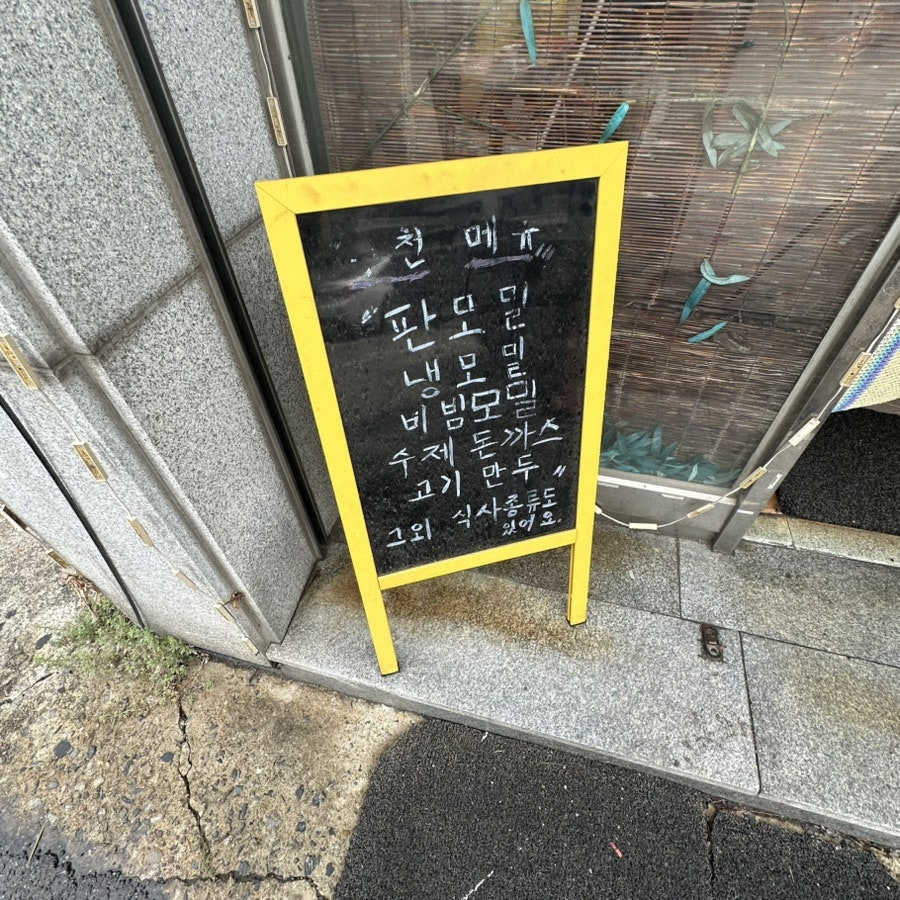 천 메뉴
"판모밀
냉모밀
비빔모밀
수제 돈까스
고기 만두"
그외 식사종류도
있어요.